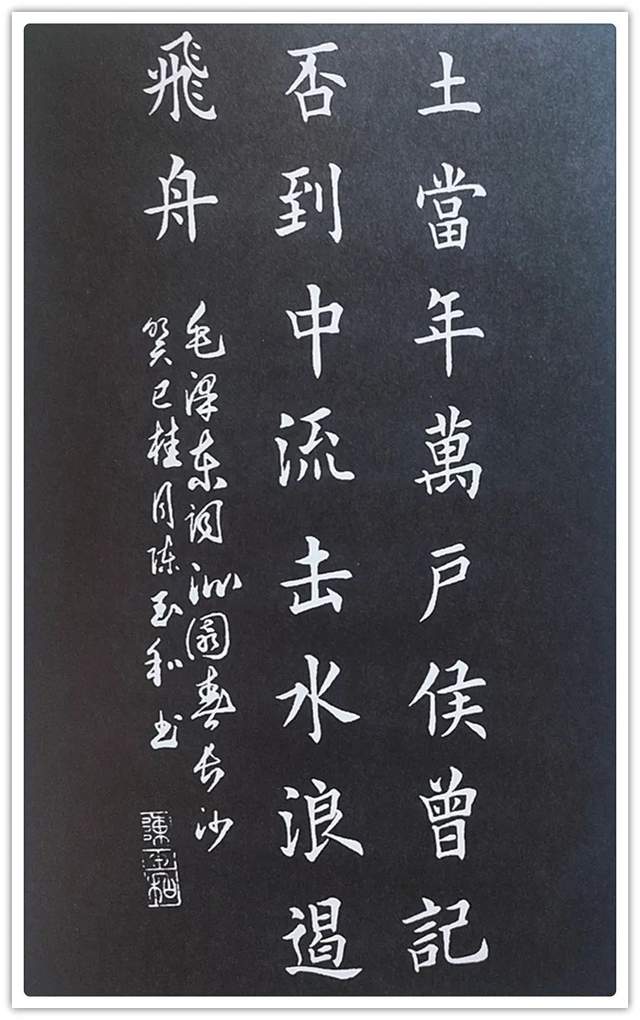 土當年萬戶侯曾記
否到中流击水浪遏
飛舟
毛澤东词沁園春长沙
癸巳桂月陈玉和书
陳玉和